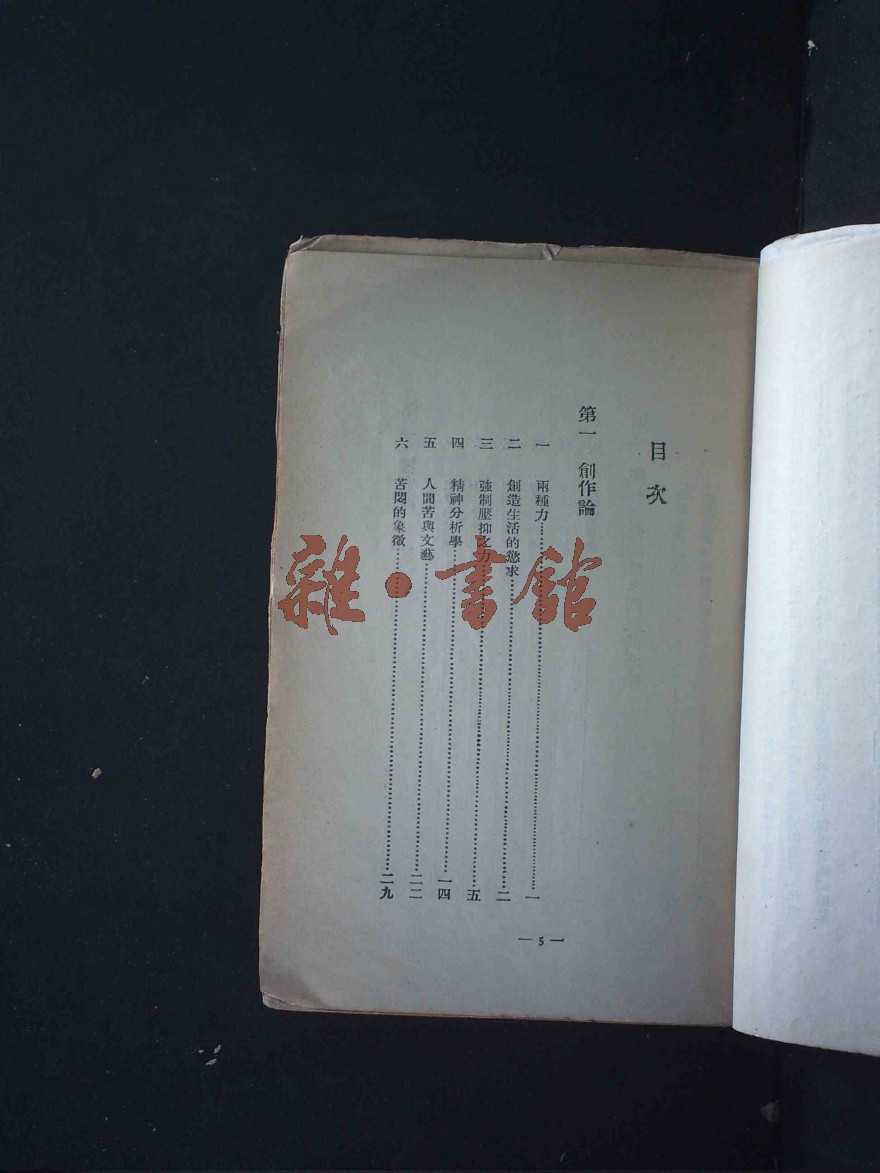 目次
第一　創作論
一　兩種力……一
二　創造生活的慾求……二
三　強制壓抑之力……五
四　精神分析學……一四
五　人間苦與文藝……二二
六　苦悶的象徵……二九
— 5 —
雜·書館